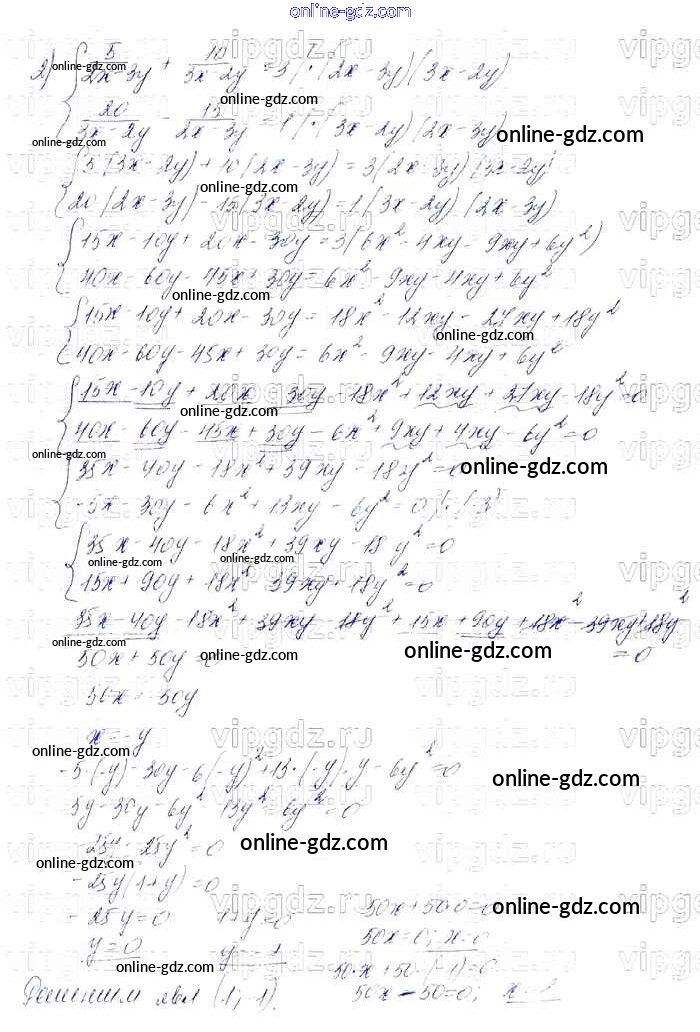 online-gdz.com
2) { 5/(2x-3y) + 10/(3x-2y) = 3 | · (2x-3y)(3x-2y)
20/(3x-2y) - 15/(2x-3y) = 1 | · (3x-2y)(2x-3y)
{ 5(3x-2y)+10(2x-3y)=3(2x-3y)(3x-2y)
20(2x-3y)-15(3x-2y)=1(3x-2y)(2x-3y)
{ 15x-10y+20x-30y=3(6x²-4xy-9xy+6y²)
40x-60y-45x+30y=6x²-9xy-4xy+6y²
{ 15x-10y+20x-30y=18x²-12xy-27xy+18y²
40x-60y-45x+30y=6x²-9xy-4xy+6y²
{ 15x-10y+20x-30y-18x²+12xy+27xy-18y²=0
40x-60y-45x+30y-6x²+9xy+4xy-6y²=0
{ 35x-40y-18x²+39xy-18y²=0
-5x-30y-6x²+13xy-6y²=0 | · (-3)
{ 35x-40y-18x²+39xy-18y²=0
15x+90y+18x²-39xy+18y²=0
35x-40y-18x²+39xy-18y²+15x+90y+18x²-39xy+18y²
=0
50x+50y=0
50x=-50y
x=-y
-5·(-y)-30y-6(-y)²+13·(-y)·y-6y²=0
5y-30y-6y²-13y²-6y²=0
-25y-25y²=0
-25y(1+y)=0
-25y=0 1+y=0
y=0 y=-1
50x+50·0=0
50x=0; x=0
50·x+50·(-1)=0
50x-50=0; x=1
Решением явл (1; -1).
vipgdz.ru
online-gdz.com